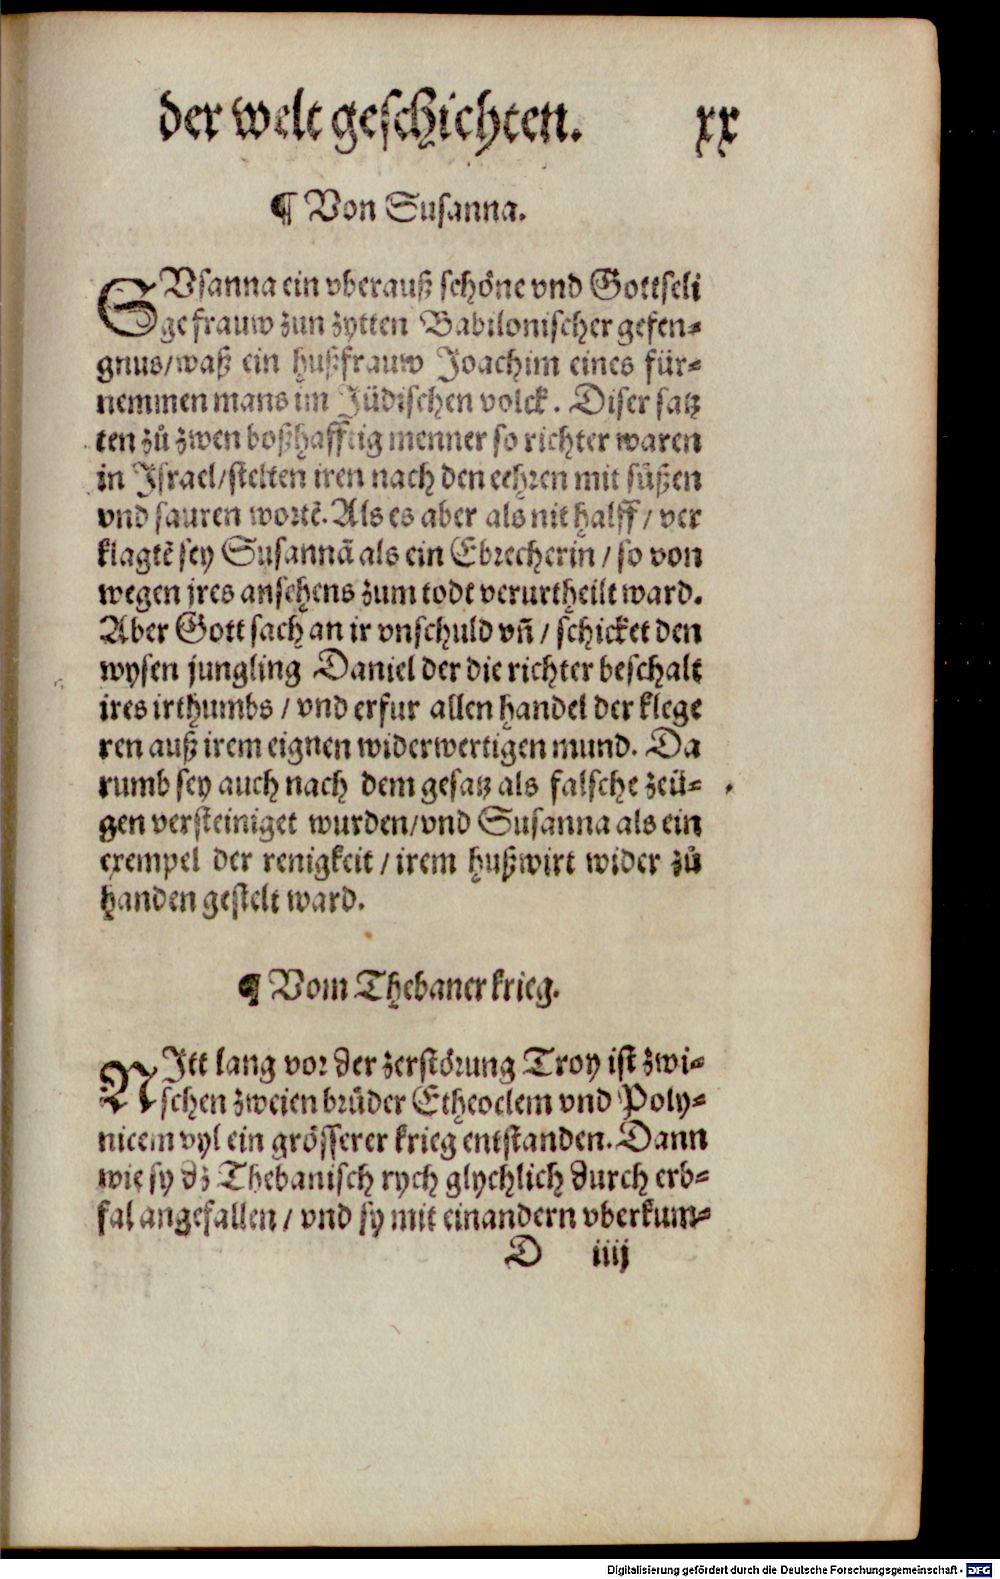 der welt geschichten. xx
¶ Von Susanna.
SVsanna ein vberauß schöne vnd Gottseli
ge frauw zun zytten Babilonischer gefen-
gnus/waß ein hußfrauw Joachim eines für-
nemmen mans im Jüdischen volck. Diser satz
ten zů zwen boßhafftig menner so richter waren
in Israel/stelten iren nach den eehren mit süßen
vnd sauren wortē. Als es aber als nit halff / ver
klagtē sey Susannā als ein Ebrecherin / so von
wegen jres ansehens zum todt verurtheilt ward.
Aber Gott sach an ir vnschuld vñ / schicket den
wysen jungling Daniel der die richter beschalt
ires irthumbs / vnd erfur allen handel der klege
ren auß irem eignen widerwertigen mund. Da
rumb sey auch nach dem gesatz als falsche zeü-
gen versteiniget wurden/vnd Susanna als ein
exempel der renigkeit / irem hußwirt wider zů
handen gestelt ward.
¶ Vom Thebaner krieg.
NItt lang vor der zerstörung Troy ist zwi-
schen zweien brüder Etheoclem vnd Poly-
nicem vyl ein grösserer krieg entstanden. Dann
wie sy dz Thebanisch rych glychlich durch erb-
fal angefallen / vnd sy mit einandern vberkum-
D iiij
Digitalisierung gefördert durch die Deutsche Forschungsgemeinschaft - DFG